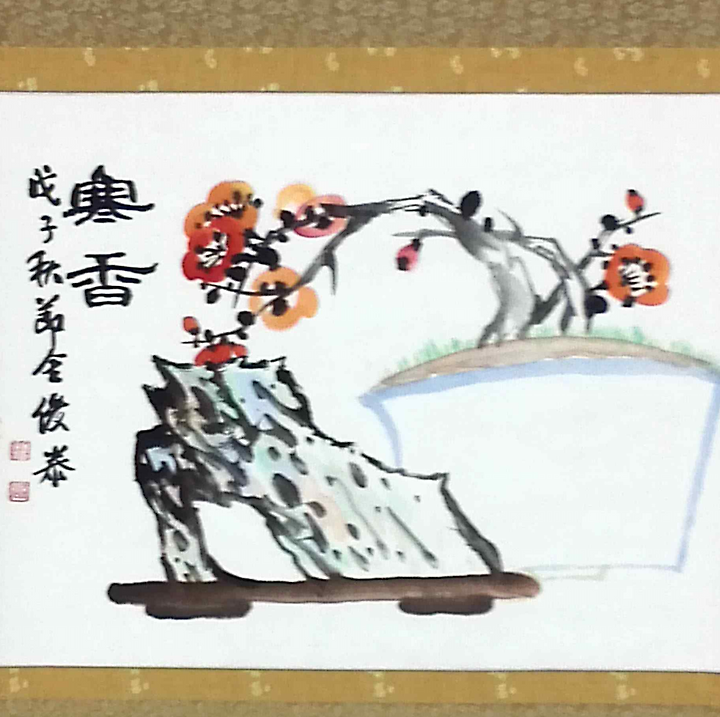 寒香
戊子秋節令俊恭